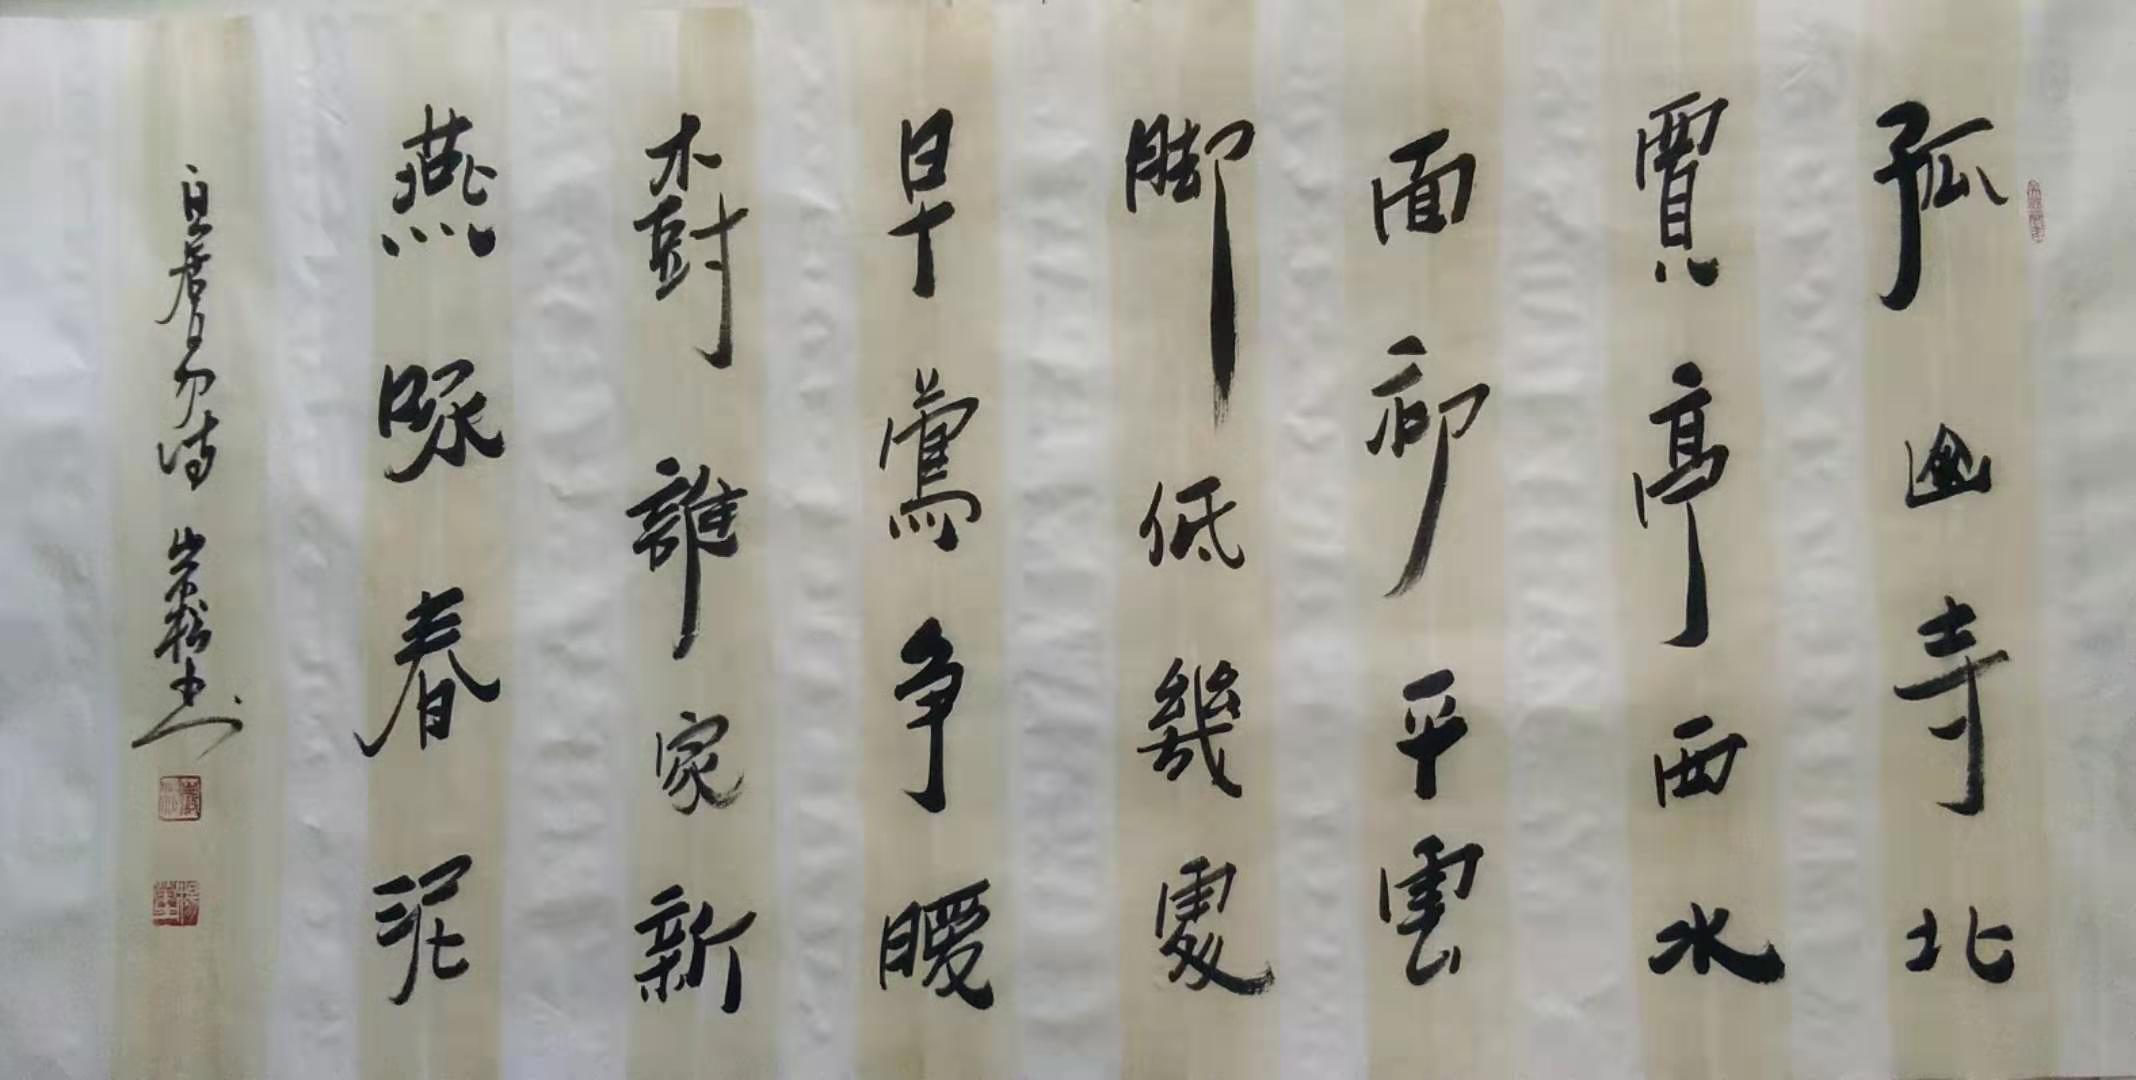 孤幽寺北
賈亭西水
面初平雲
脚低幾處
早鶯争暖
樹誰家新
燕啄春泥
白居易诗